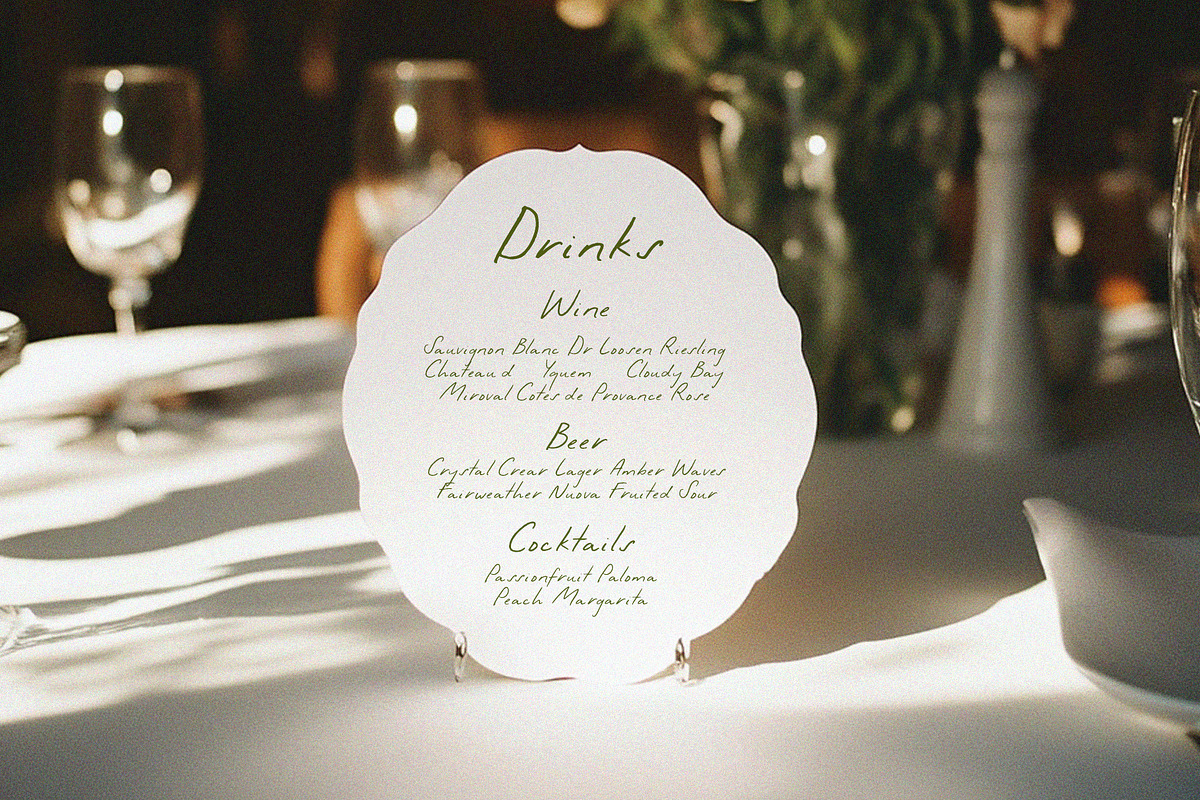 Drinks
Wine
Sauvignon Blanc Dr Loosen Riesling
Chateau d Yquem Cloudy Bay
Miroval Cotes de Provance Rose
Beer
Crystal Crear Lager Amber Waves
Fairweather Nuova Fruited Sour
Cocktails
Passionfruit Paloma
Peach Margarita